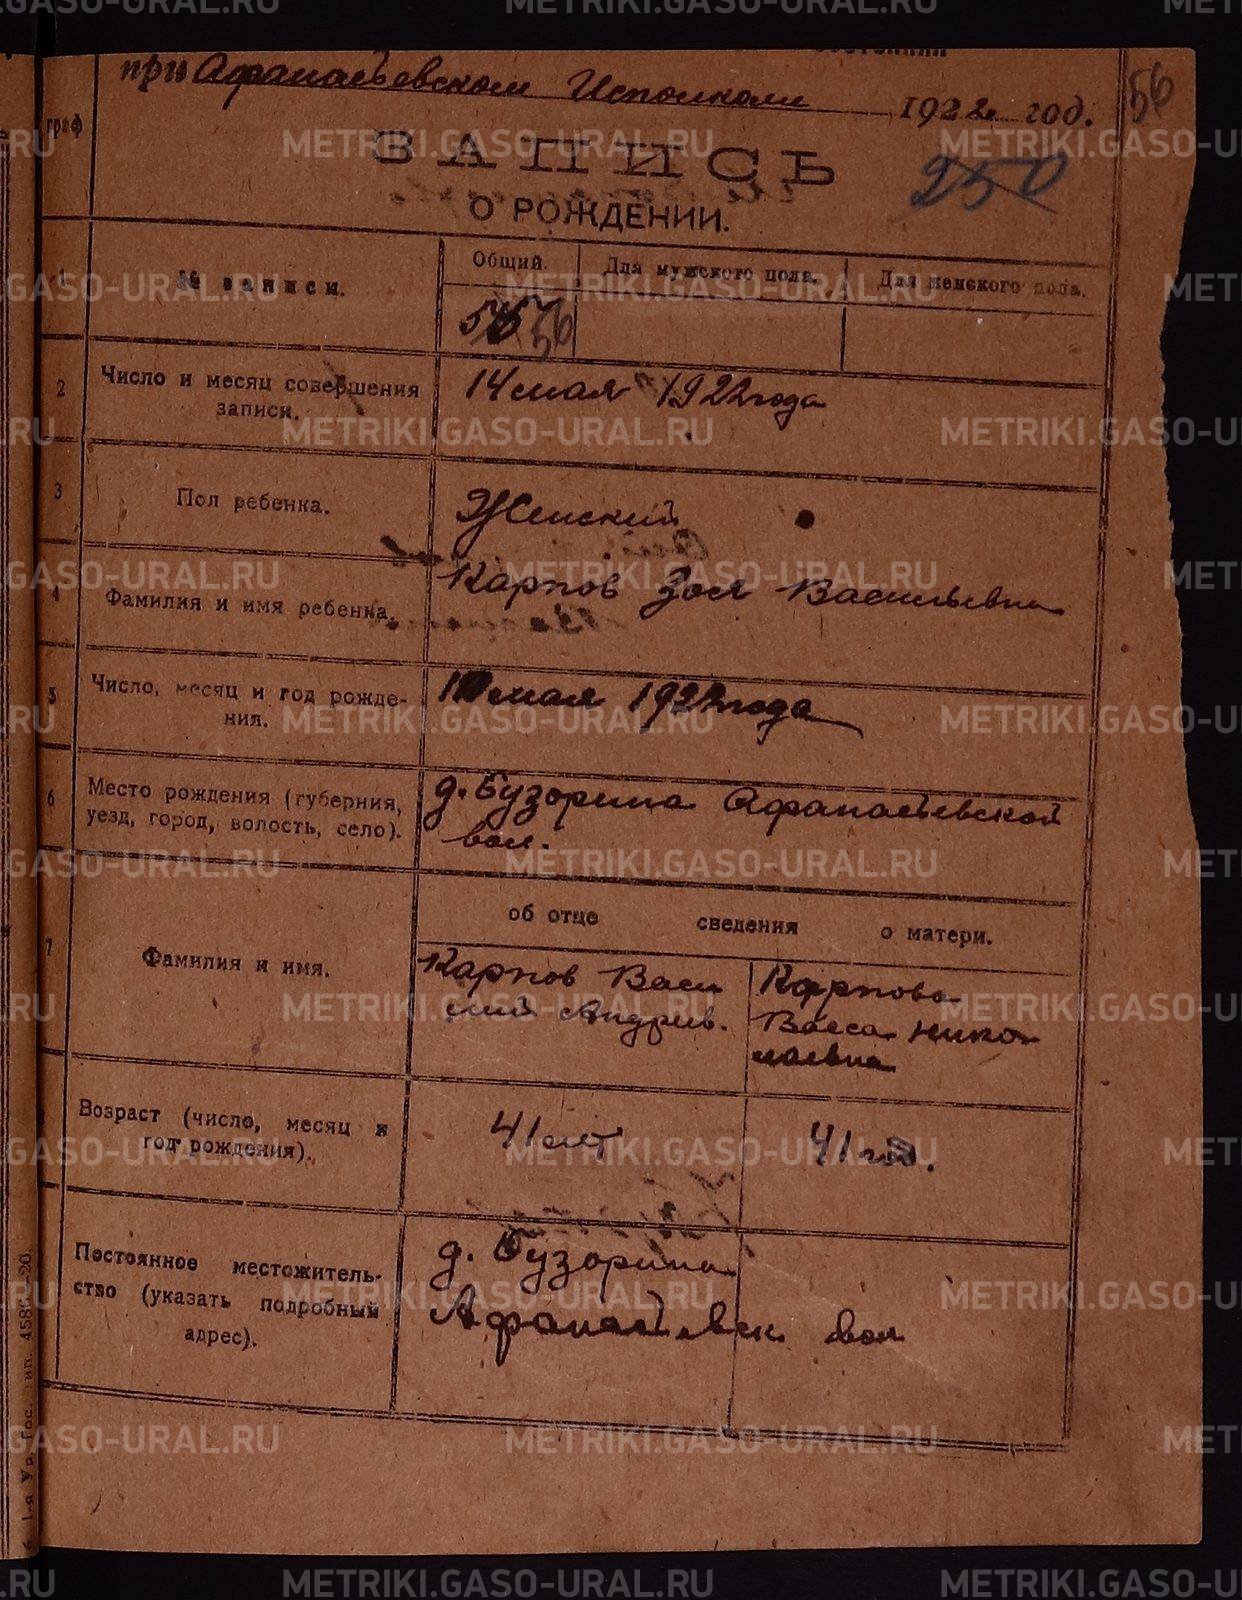 при Афанасьевском Исполкоме 1922 год.
56
граф
ЗАПИСЬ
250
О РОЖДЕНИИ.
1
№ записи.
Общий.
Для мужского пола.
Для женского пола.
56
2
Число и месяц совершения
записи.
14 мая 1922 года
3
Пол ребенка.
Женский
4
Фамилия и имя ребенка.
Карпов Зоя Васильевна
5
Число, месяц и год рожде-
ния.
мая 1922 года
6
Место рождения (губерния,
уезд, город, волость, село).
д. Бузорина Афанасьевской
вол.
7
Фамилия и имя.
об отце сведения о матери.
Карпов Васи
лий Андрив.
Карпова
Васса Нико
лаевна
Возраст (число, месяц и
год рождения).
41 лет
41 год.
Постоянное местожитель-
ство (указать подробный
адрес).
д. Бузорина
Афанасьевск вол
METRIKI.GASO-URAL.RU